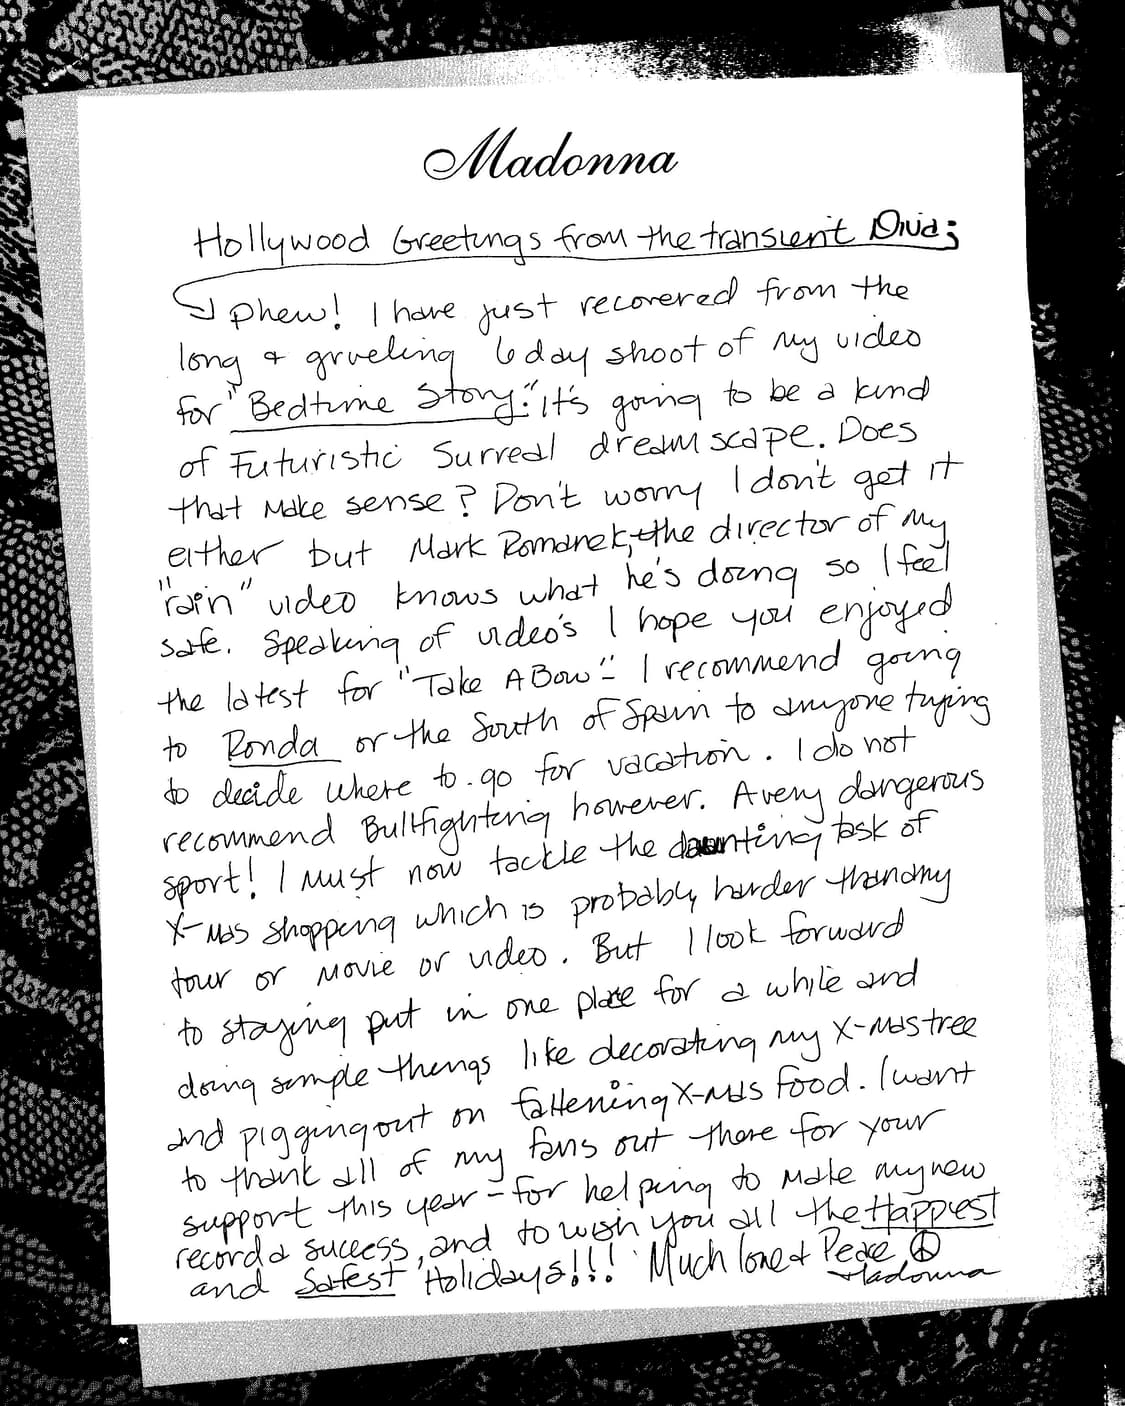 Madonna
Hollywood Greetings from the transient Diva;
Phew! I have just recovered from the
long & grueling 6 day shoot of my video
for "Bedtime Story." It's going to be a kind
of Futuristic Surreal dreamscape. Does
that make sense? Don't worry I don't get it
either but Mark Romanek, the director of my
"rain" video knows what he's doing so I feel
safe. Speaking of video's I hope you enjoyed
the latest for "Take A Bow" - I recommend going
to Ronda or the South of Spain to anyone trying
to decide where to go for vacation. I do not
recommend Bullfighting however. A very dangerous
sport! I must now tackle the daunting task of
X-mas shopping which is probably harder than any
tour or movie or video. But I look forward
to staying put in one place for a while and
doing simple things like decorating my X-mas tree
and pigging out on fattening X-mas food. I want
to thank all of my fans out there for your
support this year - for helping to make my new
record a success, and to wish you all the Happiest
and Safest Holidays!!! Much love & Peace ☮
Madonna